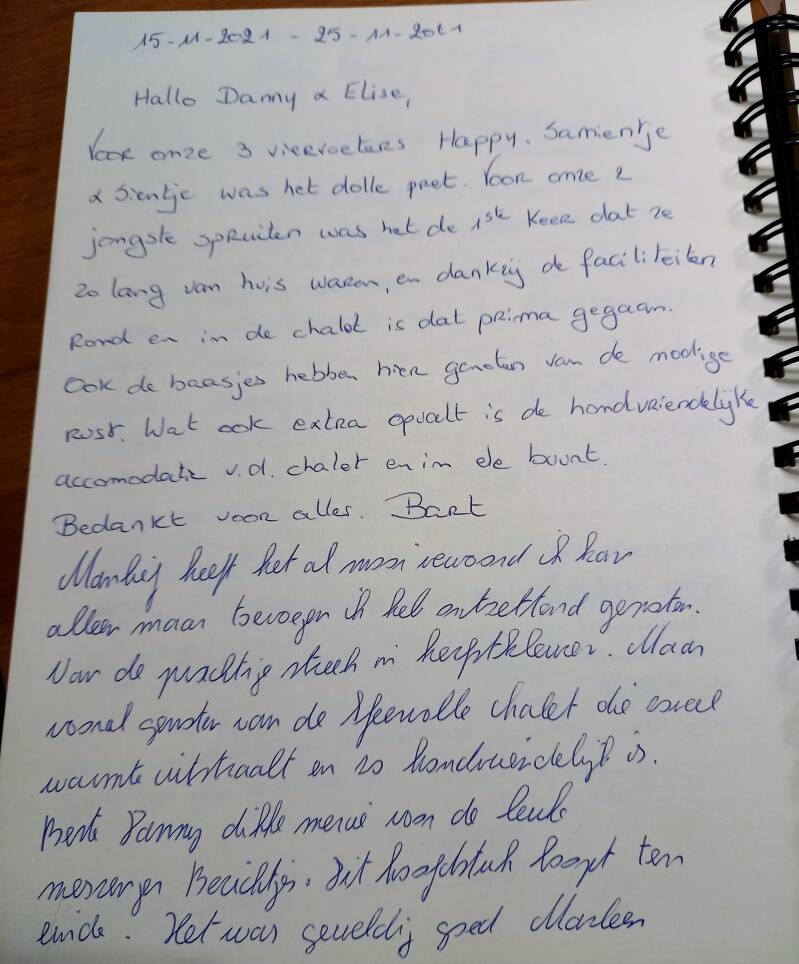 15-11-2021 - 25-11-2021
Hallo Danny & Elise,
Voor onze 3 viervoeters Happy. Samientje
& Sientje was het dolle pret. Voor onze 2
jongste spruiten was het de 1ste keer dat ze
zo lang van huis waren, en dankzij de faciliteiten
Rond en in de chalet is dat prima gegaan.
Ook de baasjes hebben hier genoten van de nodige
rust. Wat ook extra opvalt is de hondvriendelijke
accomodatie v.d. chalet en in de buurt.
Bedankt voor alles. Bart
heeft het al mooi verwoord ik kan
alleen maar toevoegen ik heb ontzettend genoten.
Van de prachtige streek in herfstkleuren. Maar
vooral genoten van de sfeervolle chalet die zoveel
warmte uitstraalt en zo hondvriendelijk is.
Beste Danny dikke merci voor de leuke
messenger Berichtjes. Dit hoofdstuk loopt ten
einde. Het was geweldig goed Marleen